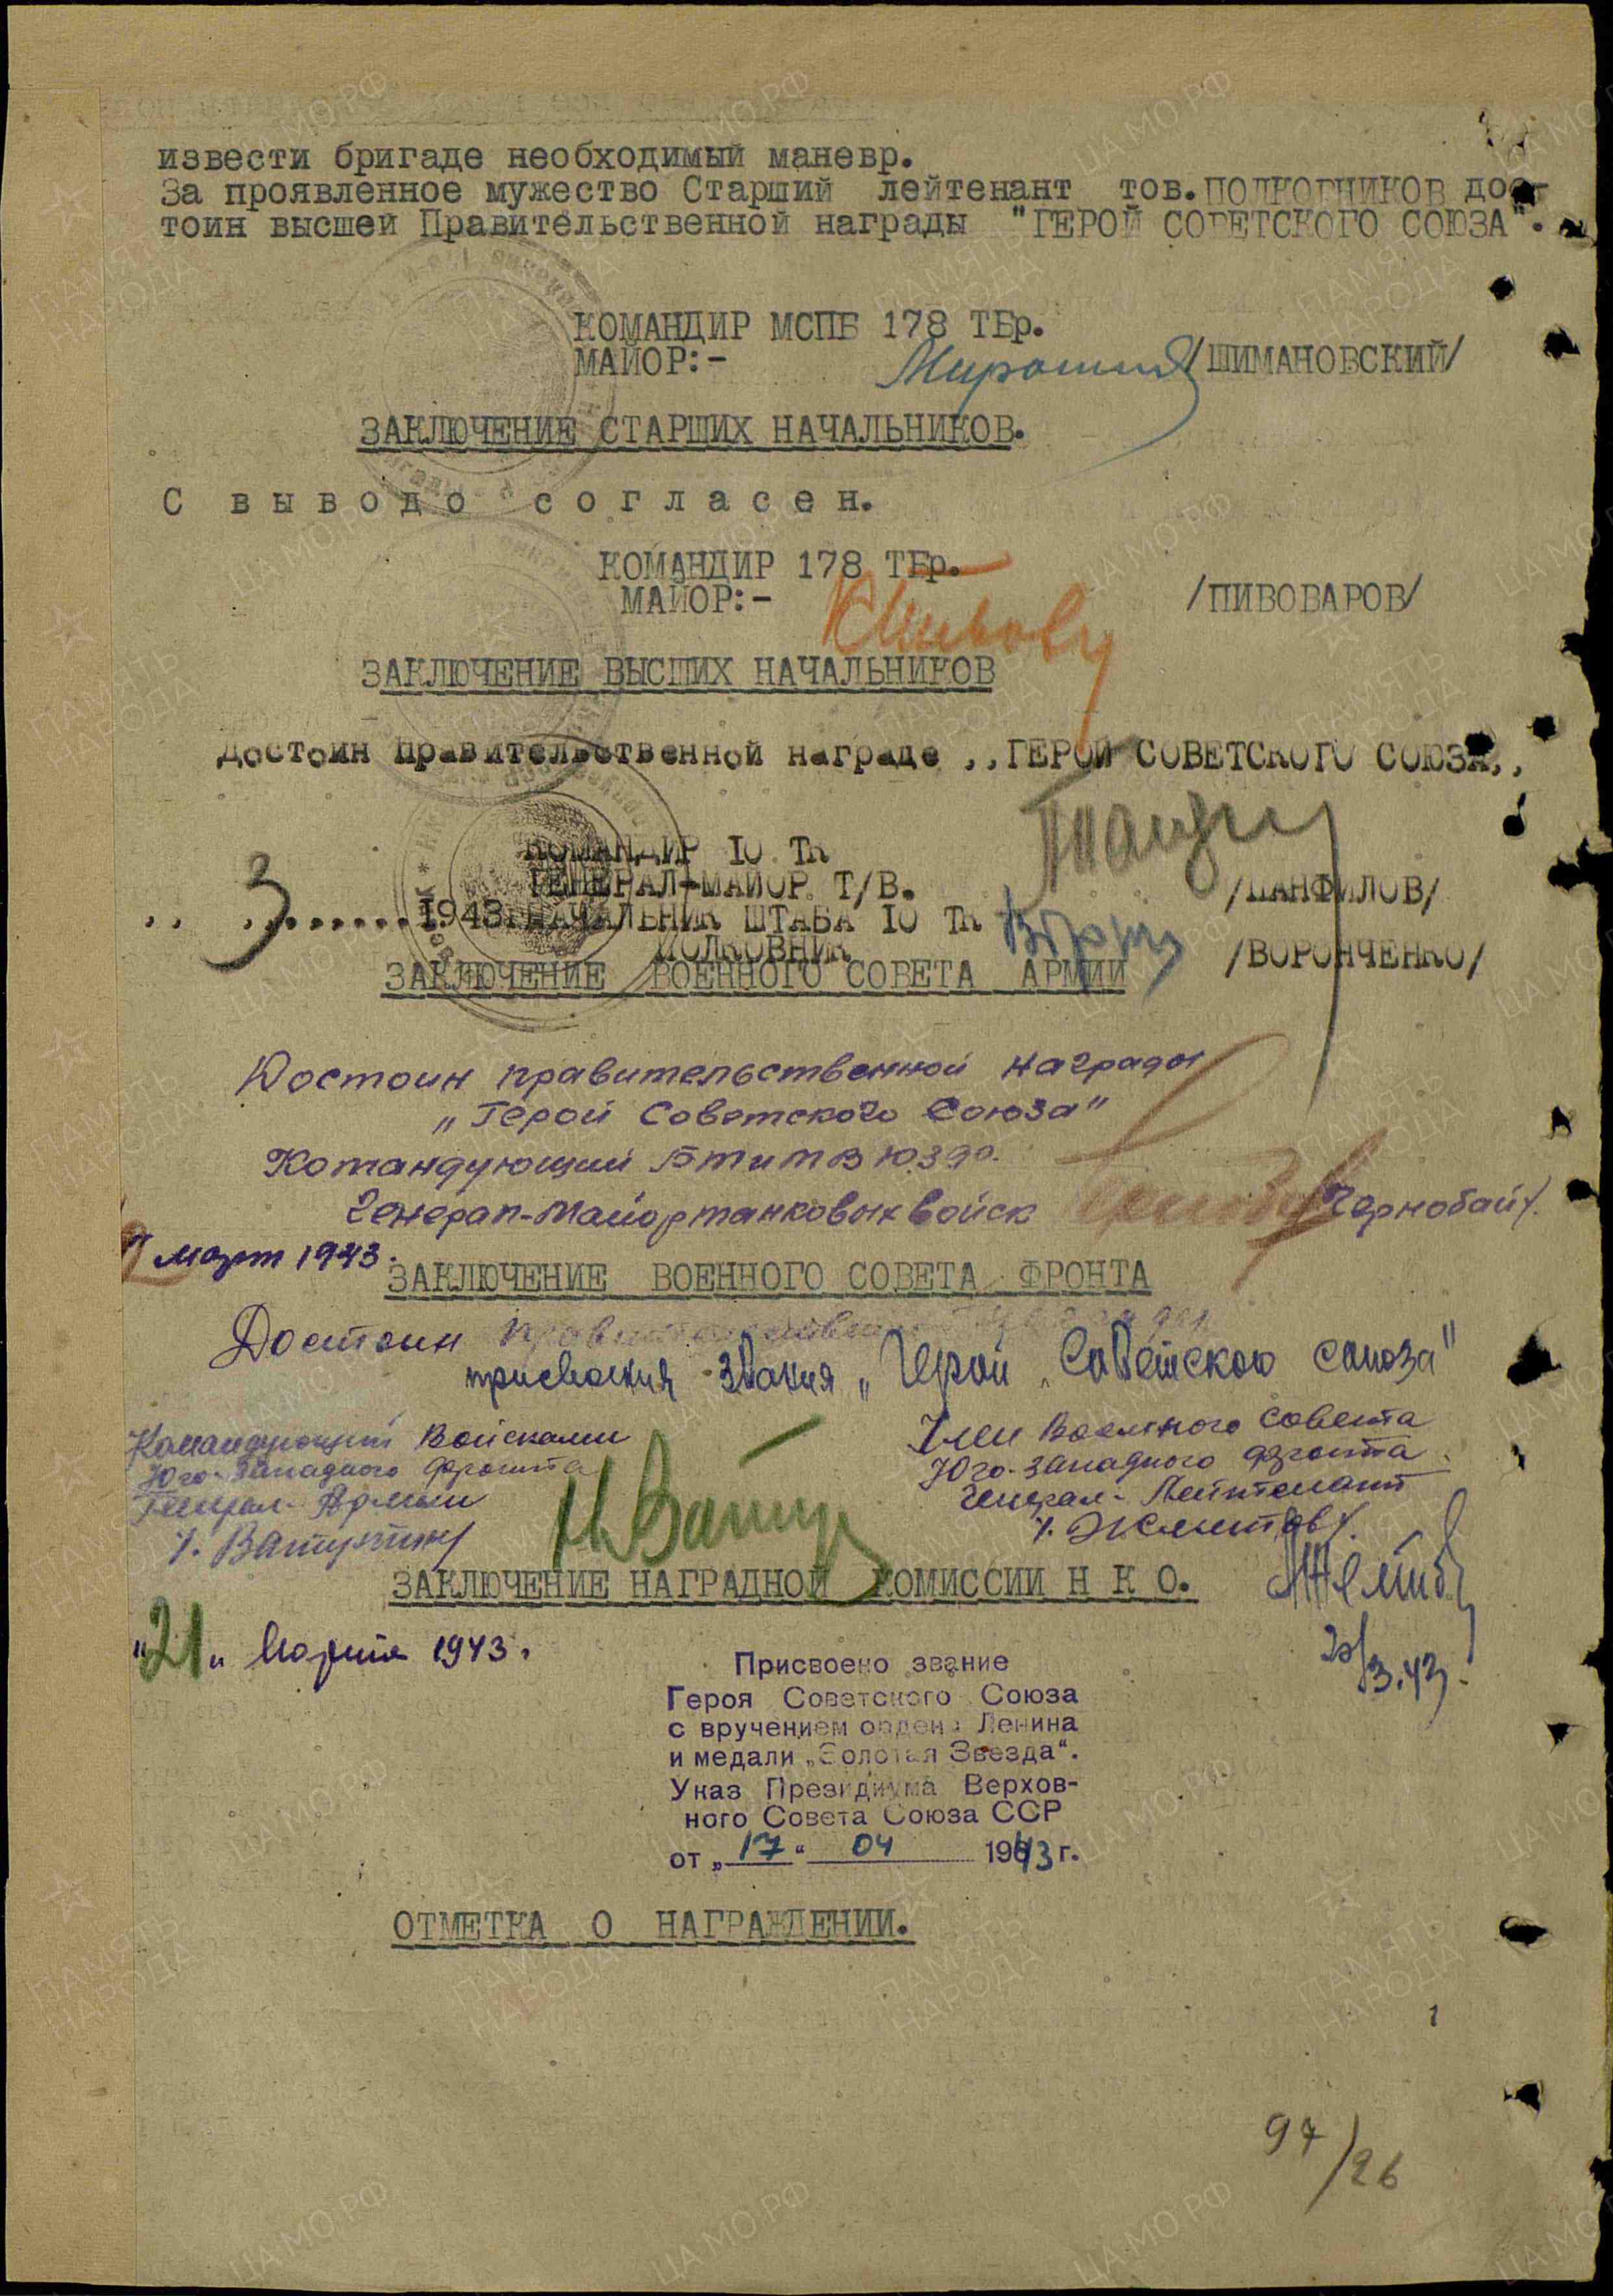 извести бригаде необходимый маневр.
За проявленное мужество Старший лейтенант тов. ПОЛКОГНИКОВ дос-
тоин высшей Правительственной награды "ГЕРОЙ СОВЕТСКОГО СОЮЗА".
КОМАНДИР МСПБ 178 ТБр.
МАЙОР:- /ШИМАНОВСКИЙ/
ЗАКЛЮЧЕНИЕ СТАРШИХ НАЧАЛЬНИКОВ.
С выводо согласен.
КОМАНДИР 178 ТБр.
МАЙОР:- /ПИВОВАРОВ/
ЗАКЛЮЧЕНИЕ ВЫСШИХ НАЧАЛЬНИКОВ
достоин правительственной награде ,,ГЕРОЙ СОВЕТСКОГО СОЮЗА,,
КОМАНДИР 10 ТК
ГЕНЕРАЛ-МАЙОР Т/В. /ПАНФИЛОВ/
,, 3 ,,......1943г НАЧАЛЬНИК ШТАБА 10 ТК
ПОЛКОВНИК /ВОРОНЧЕНКО/
ЗАКЛЮЧЕНИЕ ВОЕННОГО СОВЕТА АРМИИ
Достоин правительственной награды
„Герой Советского Союза"
Командующий БТ и МВ ЮЗФ
Генерал-майор танковых войск /Чернобай/.
март 1943.
ЗАКЛЮЧЕНИЕ ВОЕННОГО СОВЕТА ФРОНТА
Достоин правительственной награды
присвоения звания „Герой Советскою союза"
Командующий Войсками
Юго-Западного фронта
Генерал-Армии
/. Ватутин/
Н Вату
Член Военного Совета
Юго-западного фронта
Генерал-Лейтенант
/. Желтов/.
Желтов
20/3.43.
ЗАКЛЮЧЕНИЕ НАГРАДНОЙ КОМИССИИ Н К О.
"21" Марта 1943.
Присвоено звание
Героя Советского Союза
с вручением ордена Ленина
и медали „Золотая Звезда".
Указ Президиума Верхов-
ного Совета Союза ССР
от „17" 04 1943 г.
ОТМЕТКА О НАГРАЖДЕНИИ.
1
97/26